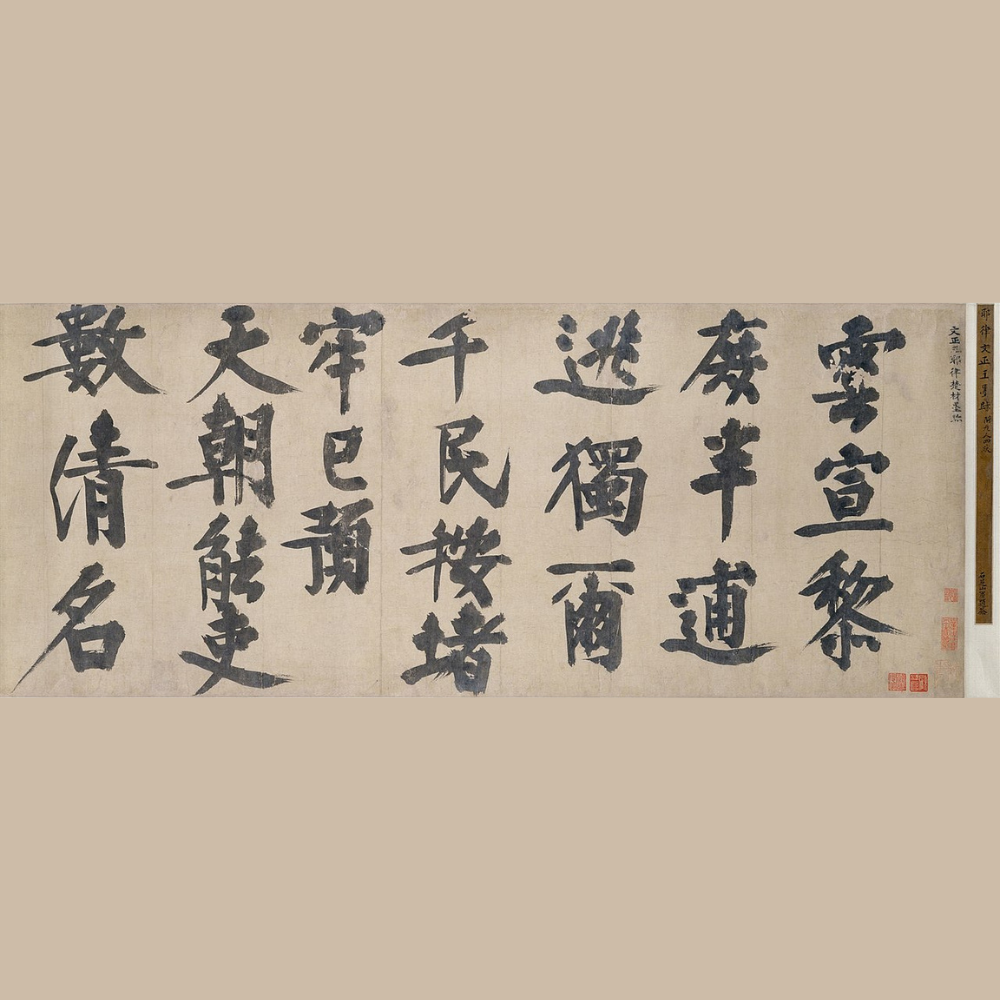 耶律文正王墨跡
文正王耶律楚材墨跡
雲宣黎
庶半逋
逃獨爾
千民按堵
牢已預
天朝能吏
數清名